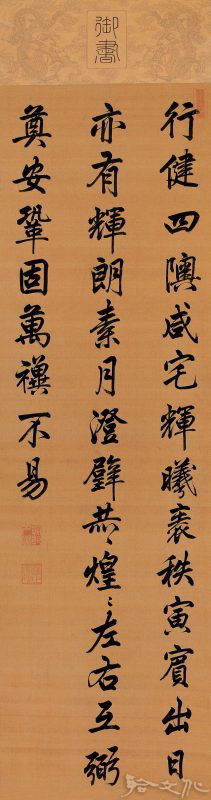 御書
行健四隩咸宅輝曦秩寅賓出日
亦有輝朗素月澄璧〻煌〻左右互弼
奠安鞏固萬禩不易
拾文化